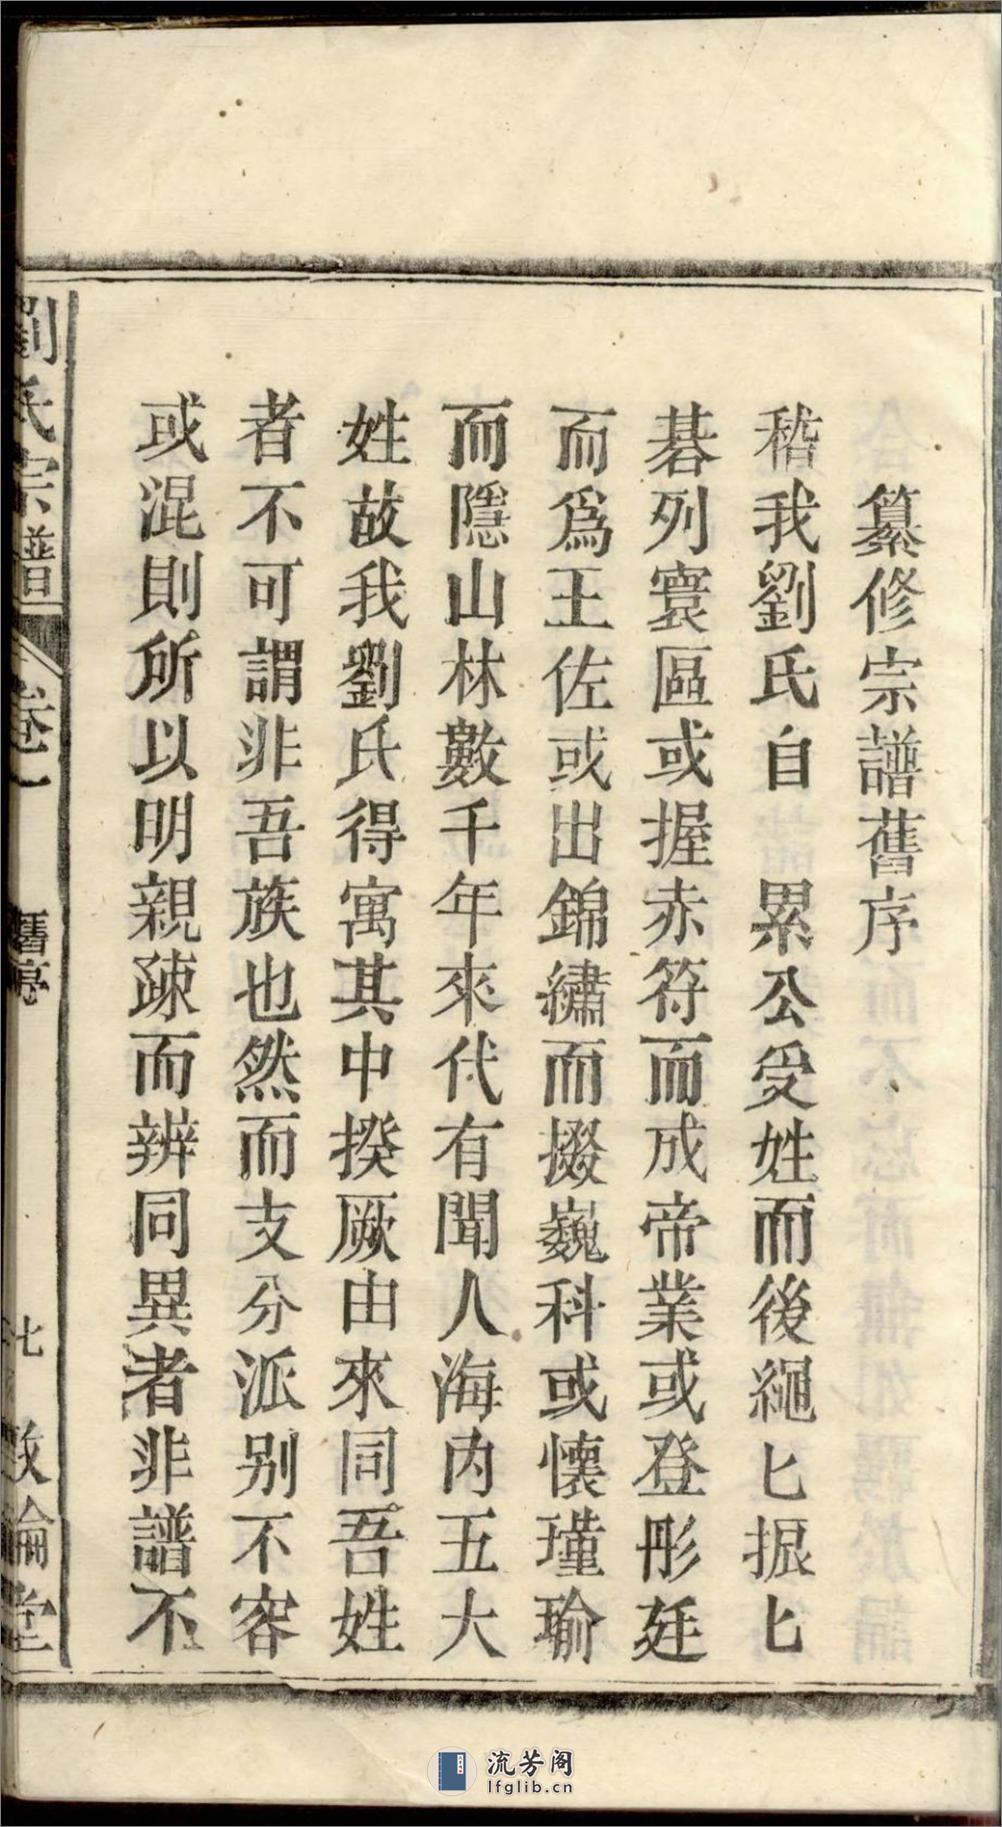 纂修宗譜舊序
稽我劉氏自　累公受姓而後繩匕振匕
碁列寰區或握赤符而成帝業或登彤廷
而爲王佐或出錦繡而掇巍科或懷瑾瑜
而隱山林數千年來代有聞人海内五大
姓故我劉氏得寓其中揆厥由來同吾姓
者不可謂非吾族也然而支分派别不容
或混則所以明親疎而辨同異者非譜不
劉氏宗譜　卷一　舊序　七　敦倫堂
流芳阁
lfglib.cn